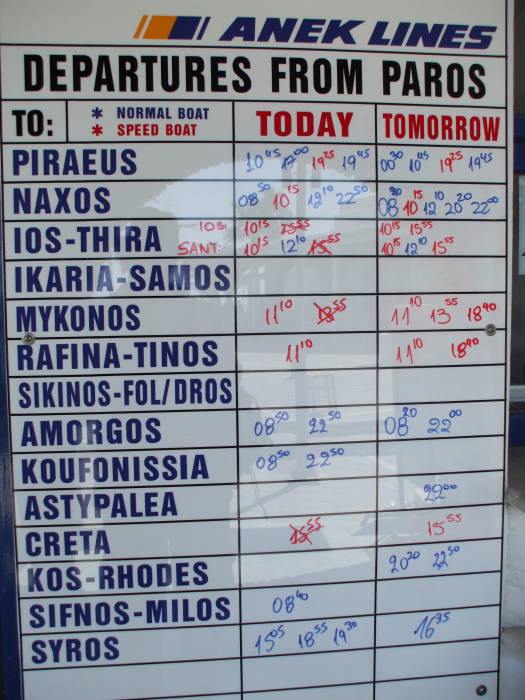 ANEK LINES
DEPARTURES FROM PAROS
TO: * NORMAL BOAT * SPEED BOAT TODAY TOMORROW
PIRAEUS 10 45 17 00 19 25 19 45 00 30 10 45 19 25 19 45
NAXOS 08 50 10 15 12 10 22 50 08 20 10 15 12 10 20 20 22 00
IOS-THIRA IOS: 10 15 15 55 10 15 15 55
SANT: 10 15 12 10 15 55 10 15 12 10 15 55
IKARIA-SAMOS
MYKONOS 11 10 18 55 11 10 13 55 18 40
RAFINA-TINOS 11 10 11 10 18 40
SIKINOS-FOL/DROS
AMORGOS 08 50 22 50 08 20 22 00
KOUFONISSIA 08 50 22 50
ASTYPALEA 22 00
CRETA 15 55 15 55
KOS-RHODES 20 20 22 50
SIFNOS-MILOS 08 40
SYROS 15 05 18 55 19 30 16 35